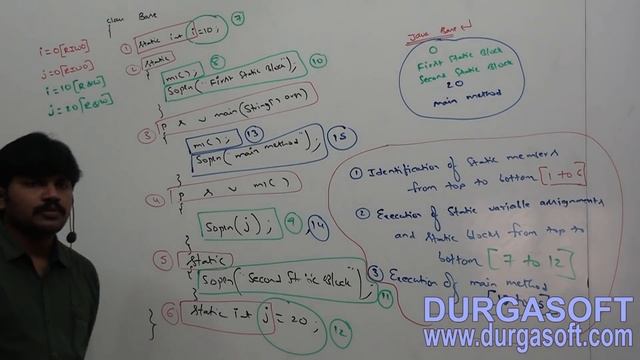 class Base
{
① static int i=10; ⑦
② static
{
m1(); ⑧
Sopln("First Static Block"); ⑩
}
③ p s v main(String[] args)
{
m1(); ⑬
Sopln("main method"); ⑮
}
④ p s v m1()
{
Sopln(j); ⑨ ⑭
}
⑤ static
{
Sopln("Second Static Block"); ⑪
}
⑥ static int j = 20; ⑫
}
i=0[RIWO]
j=0[RIWO]
i=10[R&W]
j=20[R&W]
Java Base ↵
0
First Static Block
Second Static Block
20
main method
① Identification of static members
from top to bottom [1 to 6]
② Execution of static variable assignments
and static blocks from top to
bottom [7 to 12]
③ Execution of main method
DURGASOFT
www.durgasoft.com